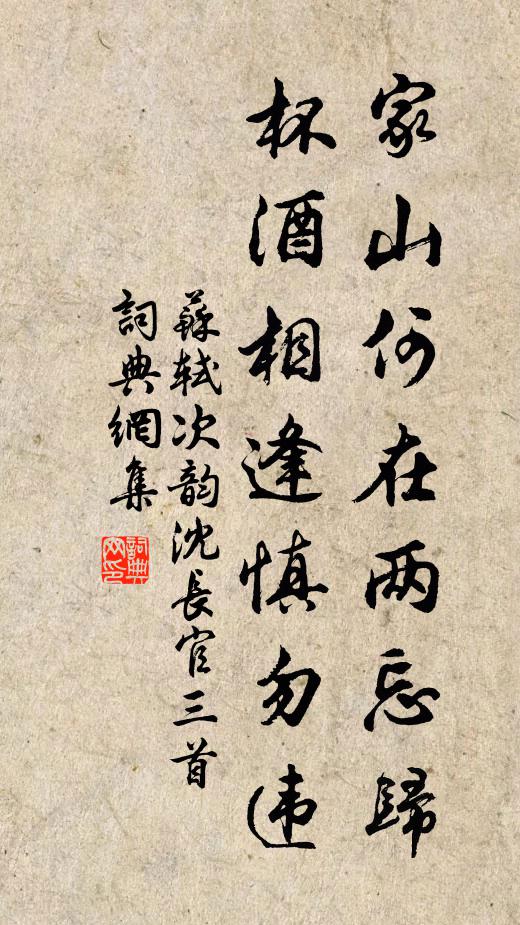 家山何在两忘歸
杯酒相逢慎勿违
蘇軾次韵沈長官三首
詞典網集
詞典网印